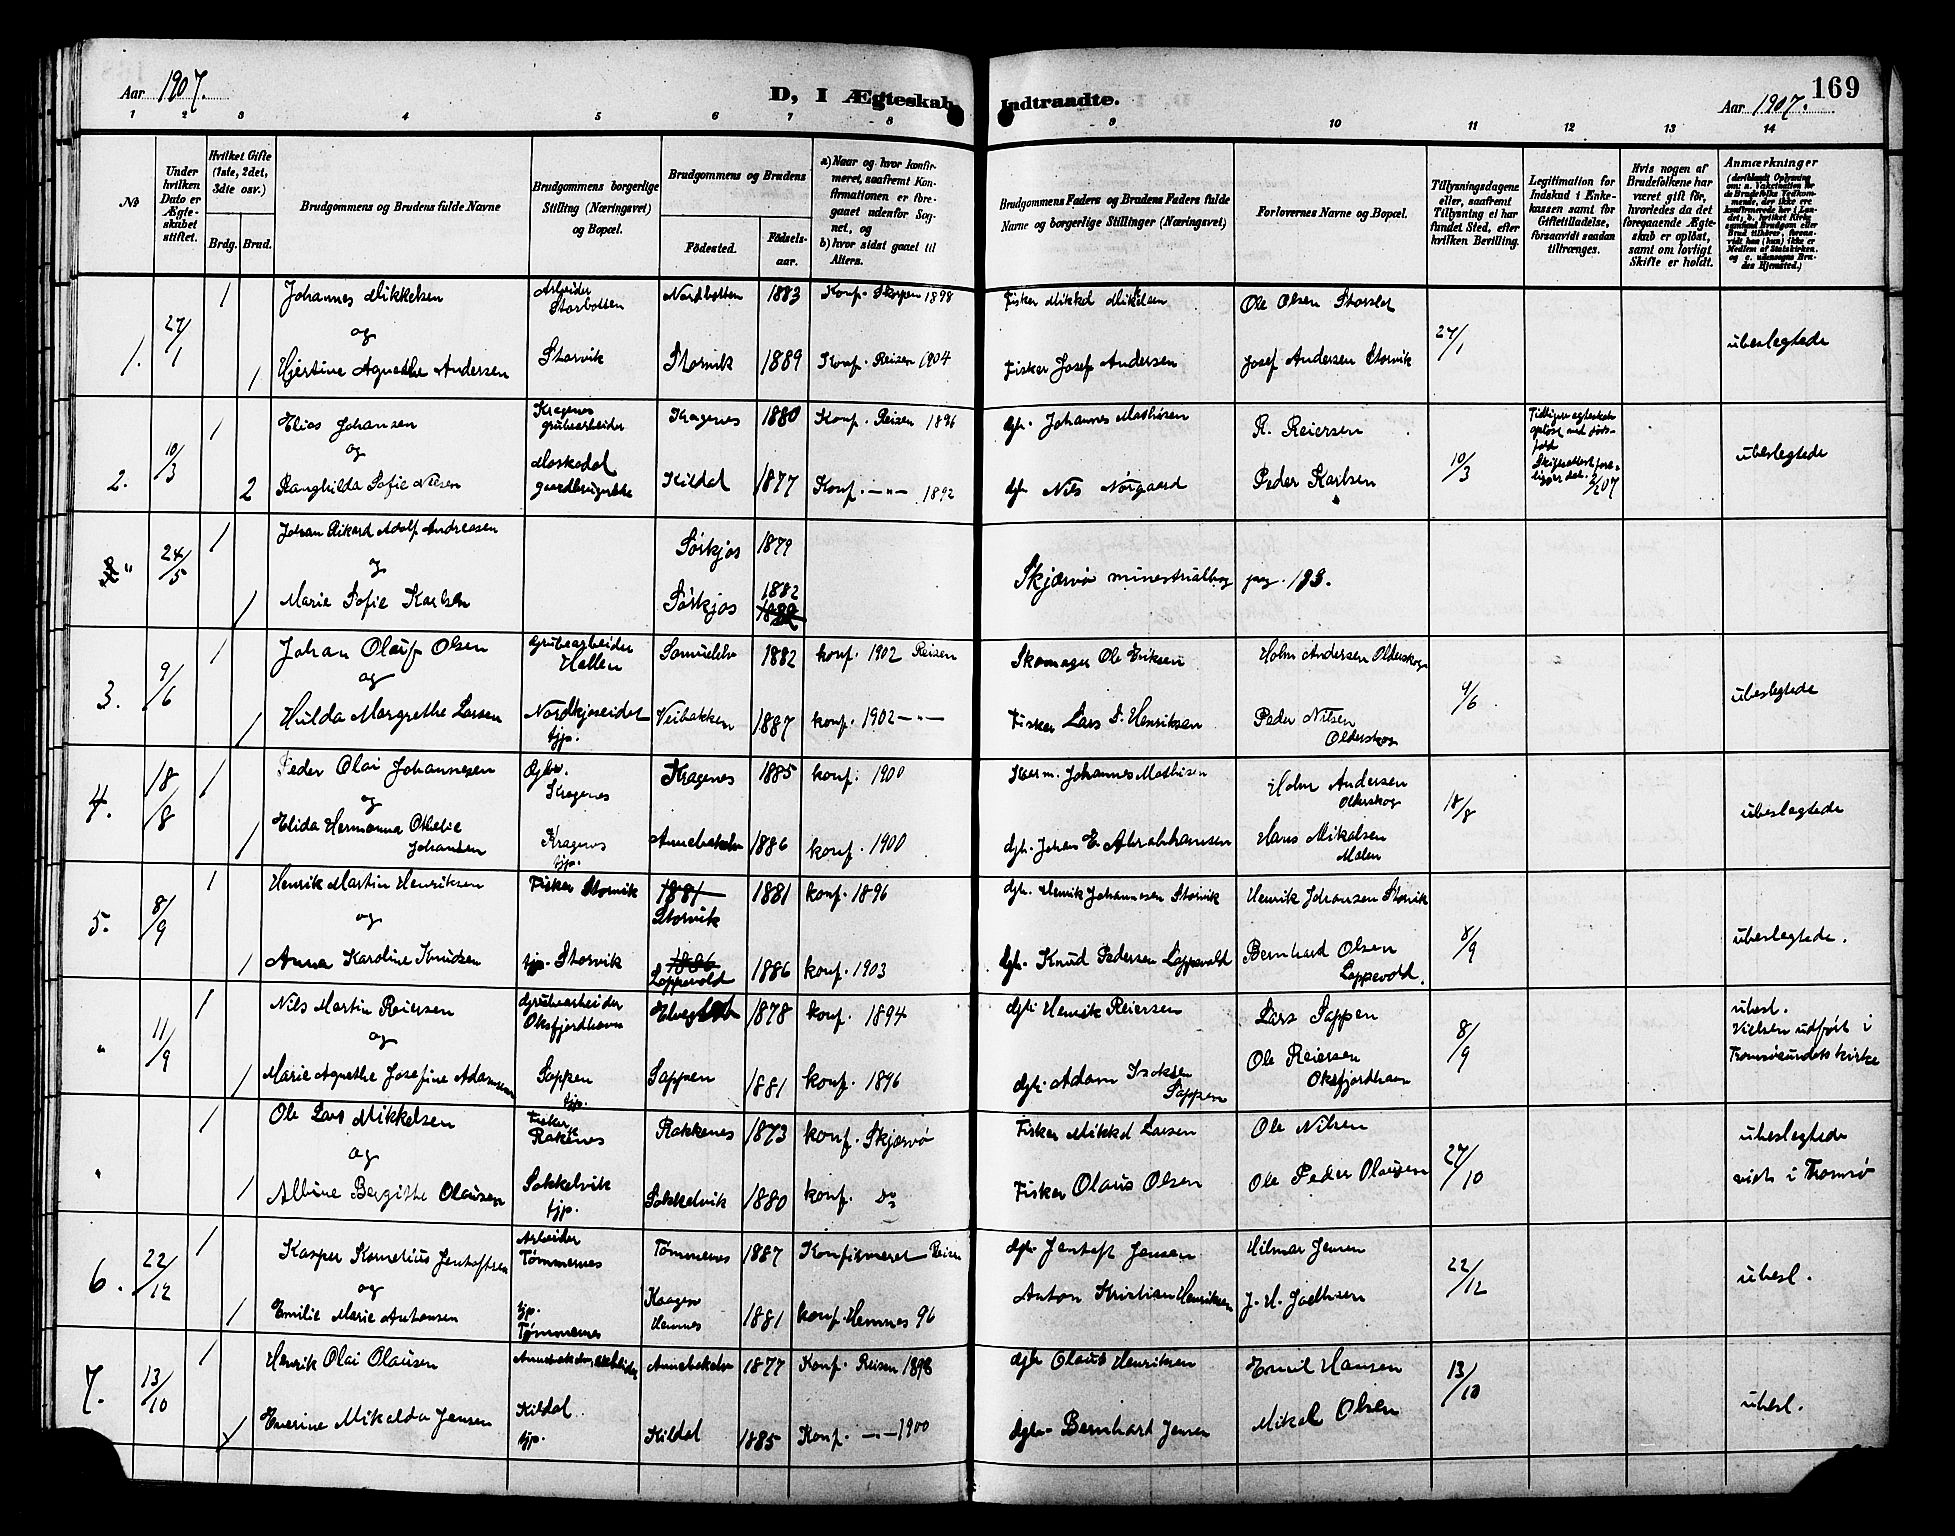 Aar 1907.
D, I Ægteskab Indtraadte.
169
Aar 1907.
1 2 3 4 5 6 7 8 9 10 11 12 13 14
No
Under hvilken Dato er Ægteskabet stiftet.
Hvilket Gifte (1ste, 2det, 3die osv.)
Brdg. Brud.
Brudgommens og Brudens fulde Navne
Brudgommens borgerlige Stilling (Næringsvei) og Bopæl.
Brudgommens og Brudens
Fødested.
Fødselsaar.
a) Naar og hvor konfirmeret, saafremt Konfirmationen er foregaaet udenfor Sognet, og
b) hvor sidst gaaet til Alters.
Brudgommens Faders og Brudens Faders fulde Navne og borgerlige Stillinger (Næringsvei)
Forlovernes Navne og Bopæl.
Tillysningsdagene eller, saafremt Tillysning ei har fundet Sted, efter hvilken Bevilling.
Legitimation for Indskud i Enkekassen samt for Giftetilladelse, forsaavidt saadan tiltrænges.
Hvis nogen af Brudefolkene har været gift før, hvorledes da det foregaaende Ægteskab er opløst, samt om lovligt Skifte er holdt.
Anmærkninger
(deriblandt Oplysning om: a. Vaksination for de Brudefolks Vedkommende, der ikke ere konfirmerede her i Landet, b. hvilket Kirkesamfund Brudgom eller Brud tilhører, forsaavidt han (hun) ikke er Medlem af Statskirken, og c. udensogns Brudes Hjemsted.)
1. 27/1 1 Johannes Mikkelsen Arbeider Storbotten Nordbotten 1883 Konf. Skorpen 1898 Fisker Mikkel Mikkelsen Ole Olsen Storslet 27/1 ubeslegtede
og
1 Hjertine Agnethe Andersen Storvik Storvik 1889 Konf. Reisen 1904 Fisker Josef Andersen Josef Andersen Storvik
2. 10/3 1 Elias Johansen Kragenes grubearbeider Kragenes 1880 Konf. Reisen 1896 gbr. Johannes Mathisen R. Reiersen 10/3 Tidligere egteskab opløst ved dødsfald Skifteattest foreligger dat. 2/2 07 ubeslegtede
og
2 Ranghilda Sofie Nilsen Moskodal gaardbrugerske Kildal 1877 Konf. —"— 1892 gbr. Nils Nørgaard Peder Karlsen
" 24/5 1 Johan Rikard Adolf Andreasen Sørkjos 1879
og Skjærvø minestrialbog pag. 123.
1 Marie Sofie Karlsen Sørkjos 1882
3. 9/6 1 Johan Olauf Olsen Grubearbeider Hallen Samuelelv 1882 konf. 1902 Reisen Skomager Ole Eriksen Holm Andersen Olderskog 9/6 ubeslegtede
og
1 Hulda Margrethe Larsen Nordkjoseidet tjp. Veibakken 1887 konf. 1902 —"— Fisker Lars P. Henriksen Peder Nilsen Olderskog
4. 18/8 1 Peder Olai Johannesen Gbr. Kragenes Kragenes 1885 konf. 1900 Johannes Mathisen Holm Andersen Olderskog 18/8 ubeslegtede
og
1 Elida Hermanna Othelie Johansen Kragenes tjp. Annebakelv 1886 konf. 1900 gbr. Johan E. Abrahamsen Hans Mikalsen Molen
5. 8/9 1 Henrik Martin Henriksen Fisker Storvik 1881 Storvik 1881 konf. 1896 gbr. Henrik Johannesen Storvik Henrik Johansen Storvik 8/9 ubeslegtede.
og
1 Anna Karoline Knudsen tjp. Storvik 1886 Lappevold 1886 konf. 1903 gbr. Knud Pedersen Lappevold Bernhard Olsen Lappevold.
" 11/9 1 Nils Martin Reiersen Grubearbeider Oksfjordhavn 1878 konf. 1894 gbr. Henrik Reiersen Lars Sappen 8/9 ubesl. Vielsen udført i Tromsøsundets kirke
og
1 Marie Agnethe Josefine Adamsen Sappen tjp. Sappen 1881 konf. 1896 gbr. Adam Isaksen Sappen Ole Reiersen Oksfjordhavn
" 1 Ole Lars Mikkelsen Fisker Rakkenes Rakkenes 1873 konf. Skjærvø Fisker Mikkel Larsen Ole Nilsen 27/10 ubeslegtede viet i Tromsø
og
1 Albine Bergitte Olausen Sokkelvik tjp. Sokkelvik 1880 konf. do Fisker Olaus Olsen Ole Peder Olausen
6. 22/12 1 Kasper Kornelius Jentoftsen Arbeider Tømmernes Tømmernes 1887 Konfirmeret Reisen gbr. Jentoft Jensen Hilmar Jensen 22/12 ubesl.
og
1 Emilie Marie Antonsen tjp. Tømmernes Kaagen Hemnes 1881 konf. Hemnes 96 Anton Kristian Henriksen
7. 13/10 1 Henrik Olai Olausen Annebakelv 1877 Konf. Reisen 1893 gbr Olaus Henriksen Emil Hansen 13/10 ubesl.
1 Enerine Mikalda Jensen Kildal tjp. Kildal 1885 Konf. —"— 1900 gbr. Bernhard Jensen Mikal Olsen